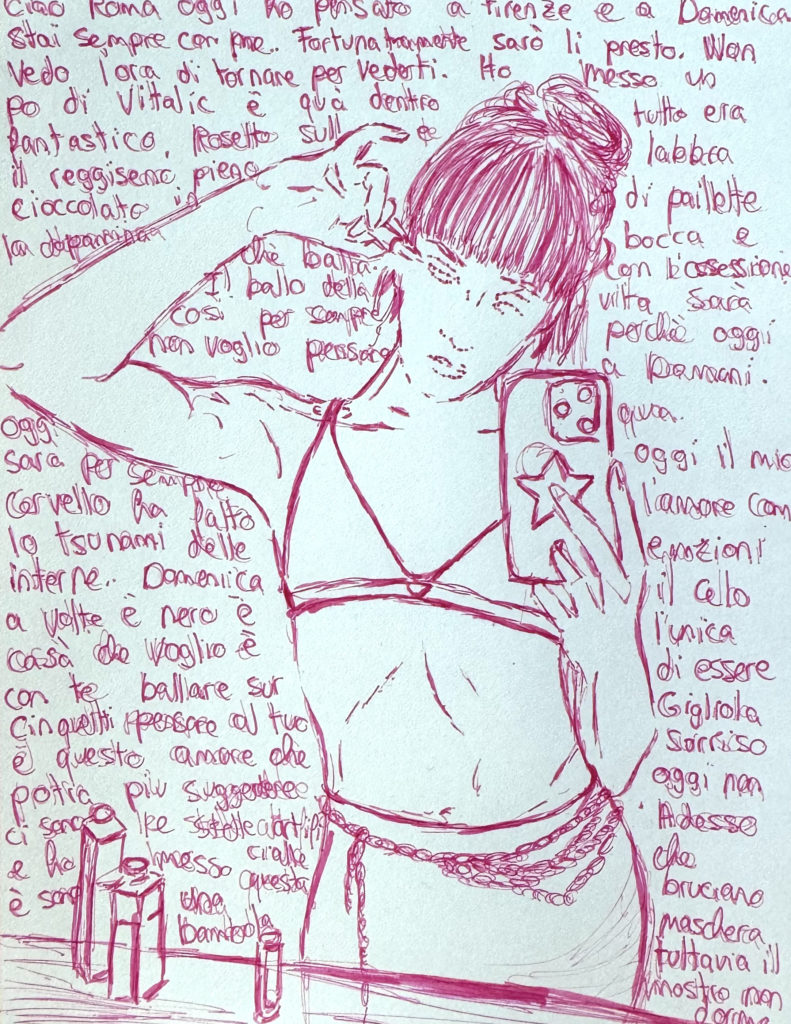 Ciao Roma oggi ho pensato a Firenze e a Domenica
Stai sempre con me.. Fortunatamente sarò li presto. Non
Vedo l'ora di tornare per vederti. Ho messo un
po di Vitalic è quà dentro tutto era
fantastico, Rosetto sull e labbra
il reggiseno, pieno di paillette
cioccolato in bocca e
la dopamina che balla con l'ossessione
Il ballo della vita sarà
così per sempre perchè oggi
non voglio pensare a Domani.
qua.
oggi oggi il mio
sara per sempre l'amore com
cervello ha fatto
lo tsunami delle emozioni
interne.. Domenica il Cello
a volte è nero è l'unica
cossà che voglio è di essere
con te ballare sur Gigliola
Cinquetti pensare al tuo sorriso
è questo amore che oggi non
potria più suggerere Adesso
ci sono che
e ho messo bruciano
è questa maschera
una tuttavia il
bambola mostro non
dorme